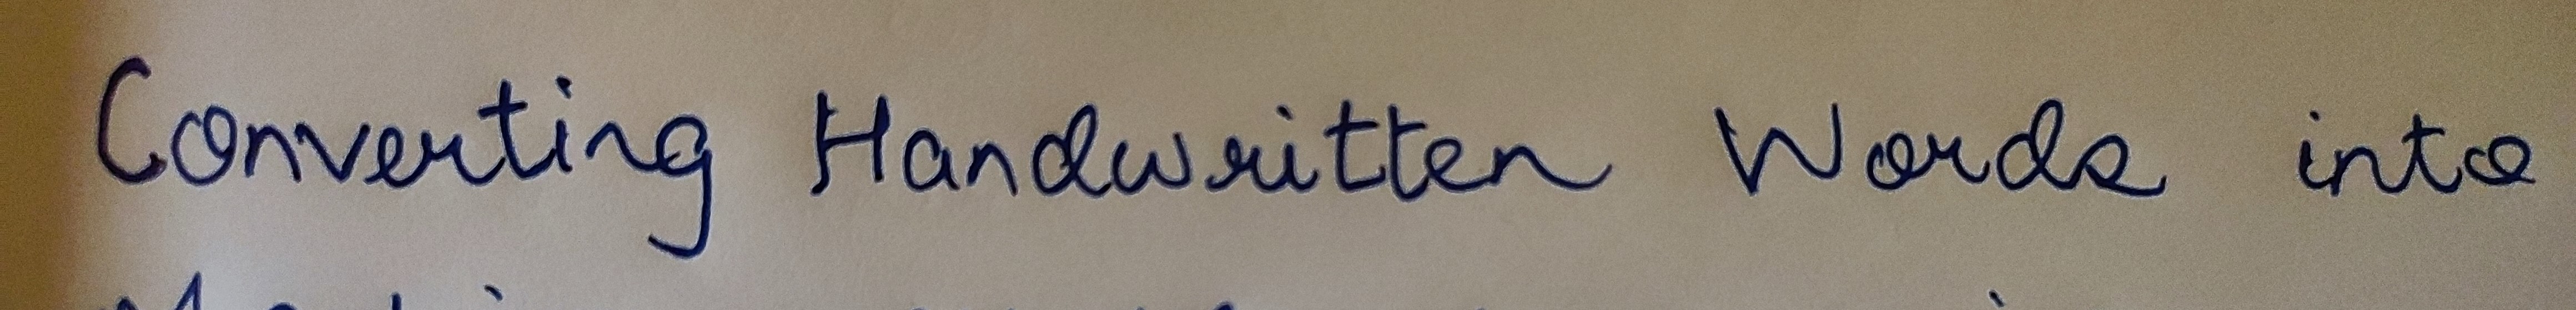 Converting Handwritten Words into